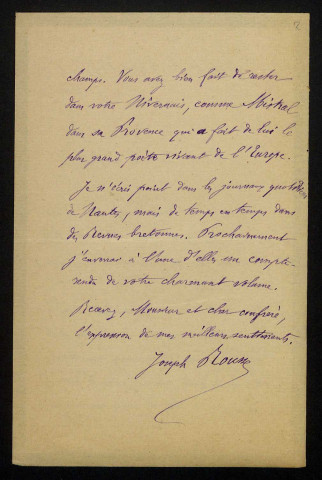 2
champs. Vous avez bien fait de rester
dans votre Nivernais, comme Mistral
dans sa Provence qui a fait de lui le
plus grand poète vivant de l'Europe.
Je n'écris point dans les journaux quotidiens
de Nantes, mais de temps en temps dans
des Revues bretonnes. Prochainement
j'enverrai à l'une d'elles un compte-
rendu de votre charmant volume.
Recevez, Monsieur et cher confrère,
l'expression de mes meilleurs sentiments.
Joseph Rousse